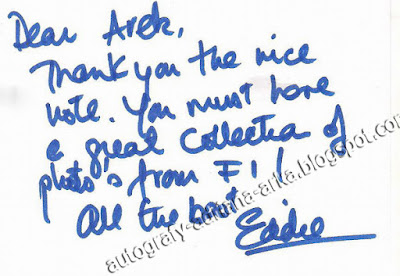 Dear Arek,
Thank you the nice
note. You must have
a great collection of
photo's from F1!
All the best
Eddie
autografy-adriana-arka.blogspot.com